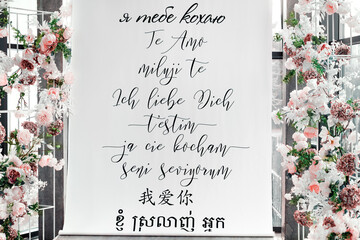 я тебе кохаю
Te Amo
miluji te
Ich liebe Dich
testim
ja cie kocham
seni seviyorum
我爱你
ខ្ញុំ ស្រលាញ់ អ្នក